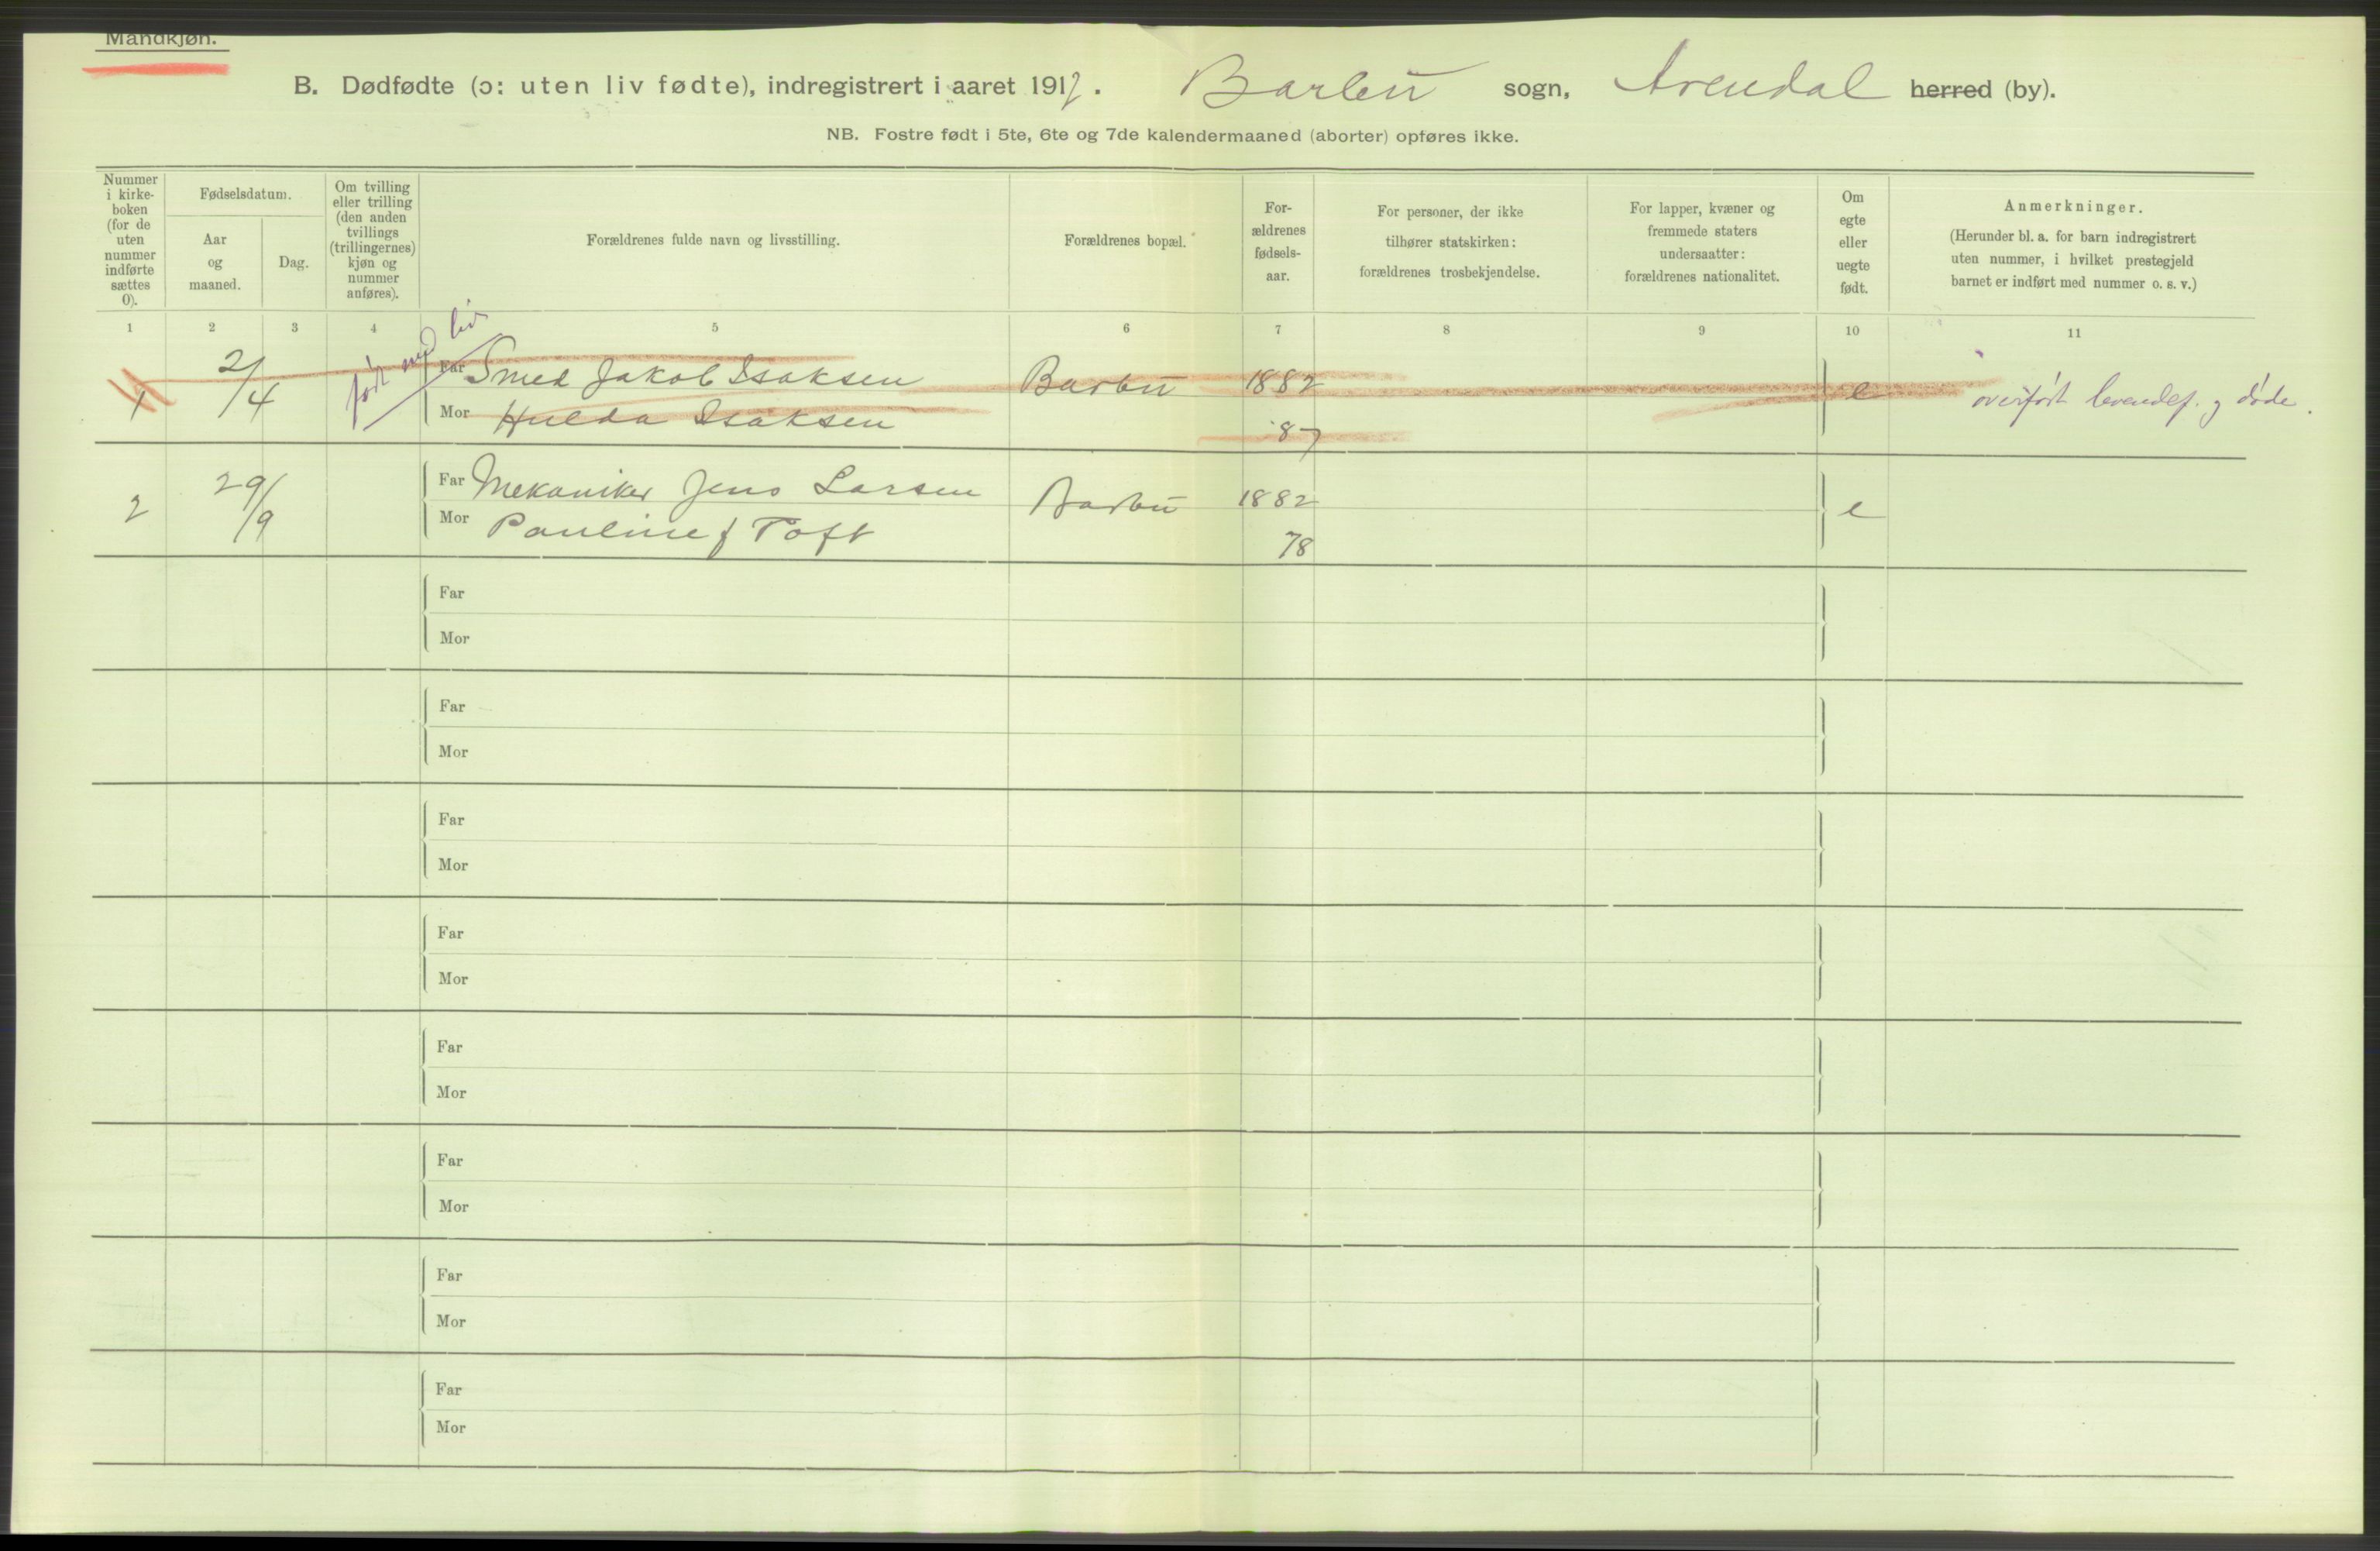 Mandkjøn.
B. Dødfødte (ɔ: uten liv fødte), indregistrert i aaret 1912. Barbu sogn, Arendal herred (by).
NB. Fostre født i 5te, 6te og 7de kalendermaaned (aborter) opføres ikke.
Nummer
i kirke-
boken
(for de
uten
nummer
indførte
sættes
0).
Fødselsdatum.
Aar
og
maaned.
Dag.
Om tvilling
eller trilling
(den anden
tvillings
(trillingernes)
kjøn og
nummer
anføres).
Forældrenes fulde navn og livsstilling.
Forældrenes bopæl.
For-
ældrenes
fødsels-
aar.
For personer, der ikke
tilhører statskirken:
forældrenes trosbekjendelse.
For lapper, kvæner og
fremmede staters
undersaatter:
forældrenes nationalitet.
Om
egte
eller
uegte
født.
Anmerkninger.
(Herunder bl. a. for barn indregistrert
uten nummer, i hvilket prestegjeld
barnet er indført med nummer o. s. v.)
1 2 3 4 5 6 7 8 9 10 11
1 2/4 født med liv Far Smed Jakob Isaksen Barbu 1882 e overført levendef. g døde.
Mor Hulda Isaksen 87
2 29/9 Far Mekaniker Jens Larsen Barbu 1882 e
Mor Pauline f Toft 78
Far
Mor
Far
Mor
Far
Mor
Far
Mor
Far
Mor
Far
Mor
Far
Mor
Far
Mor